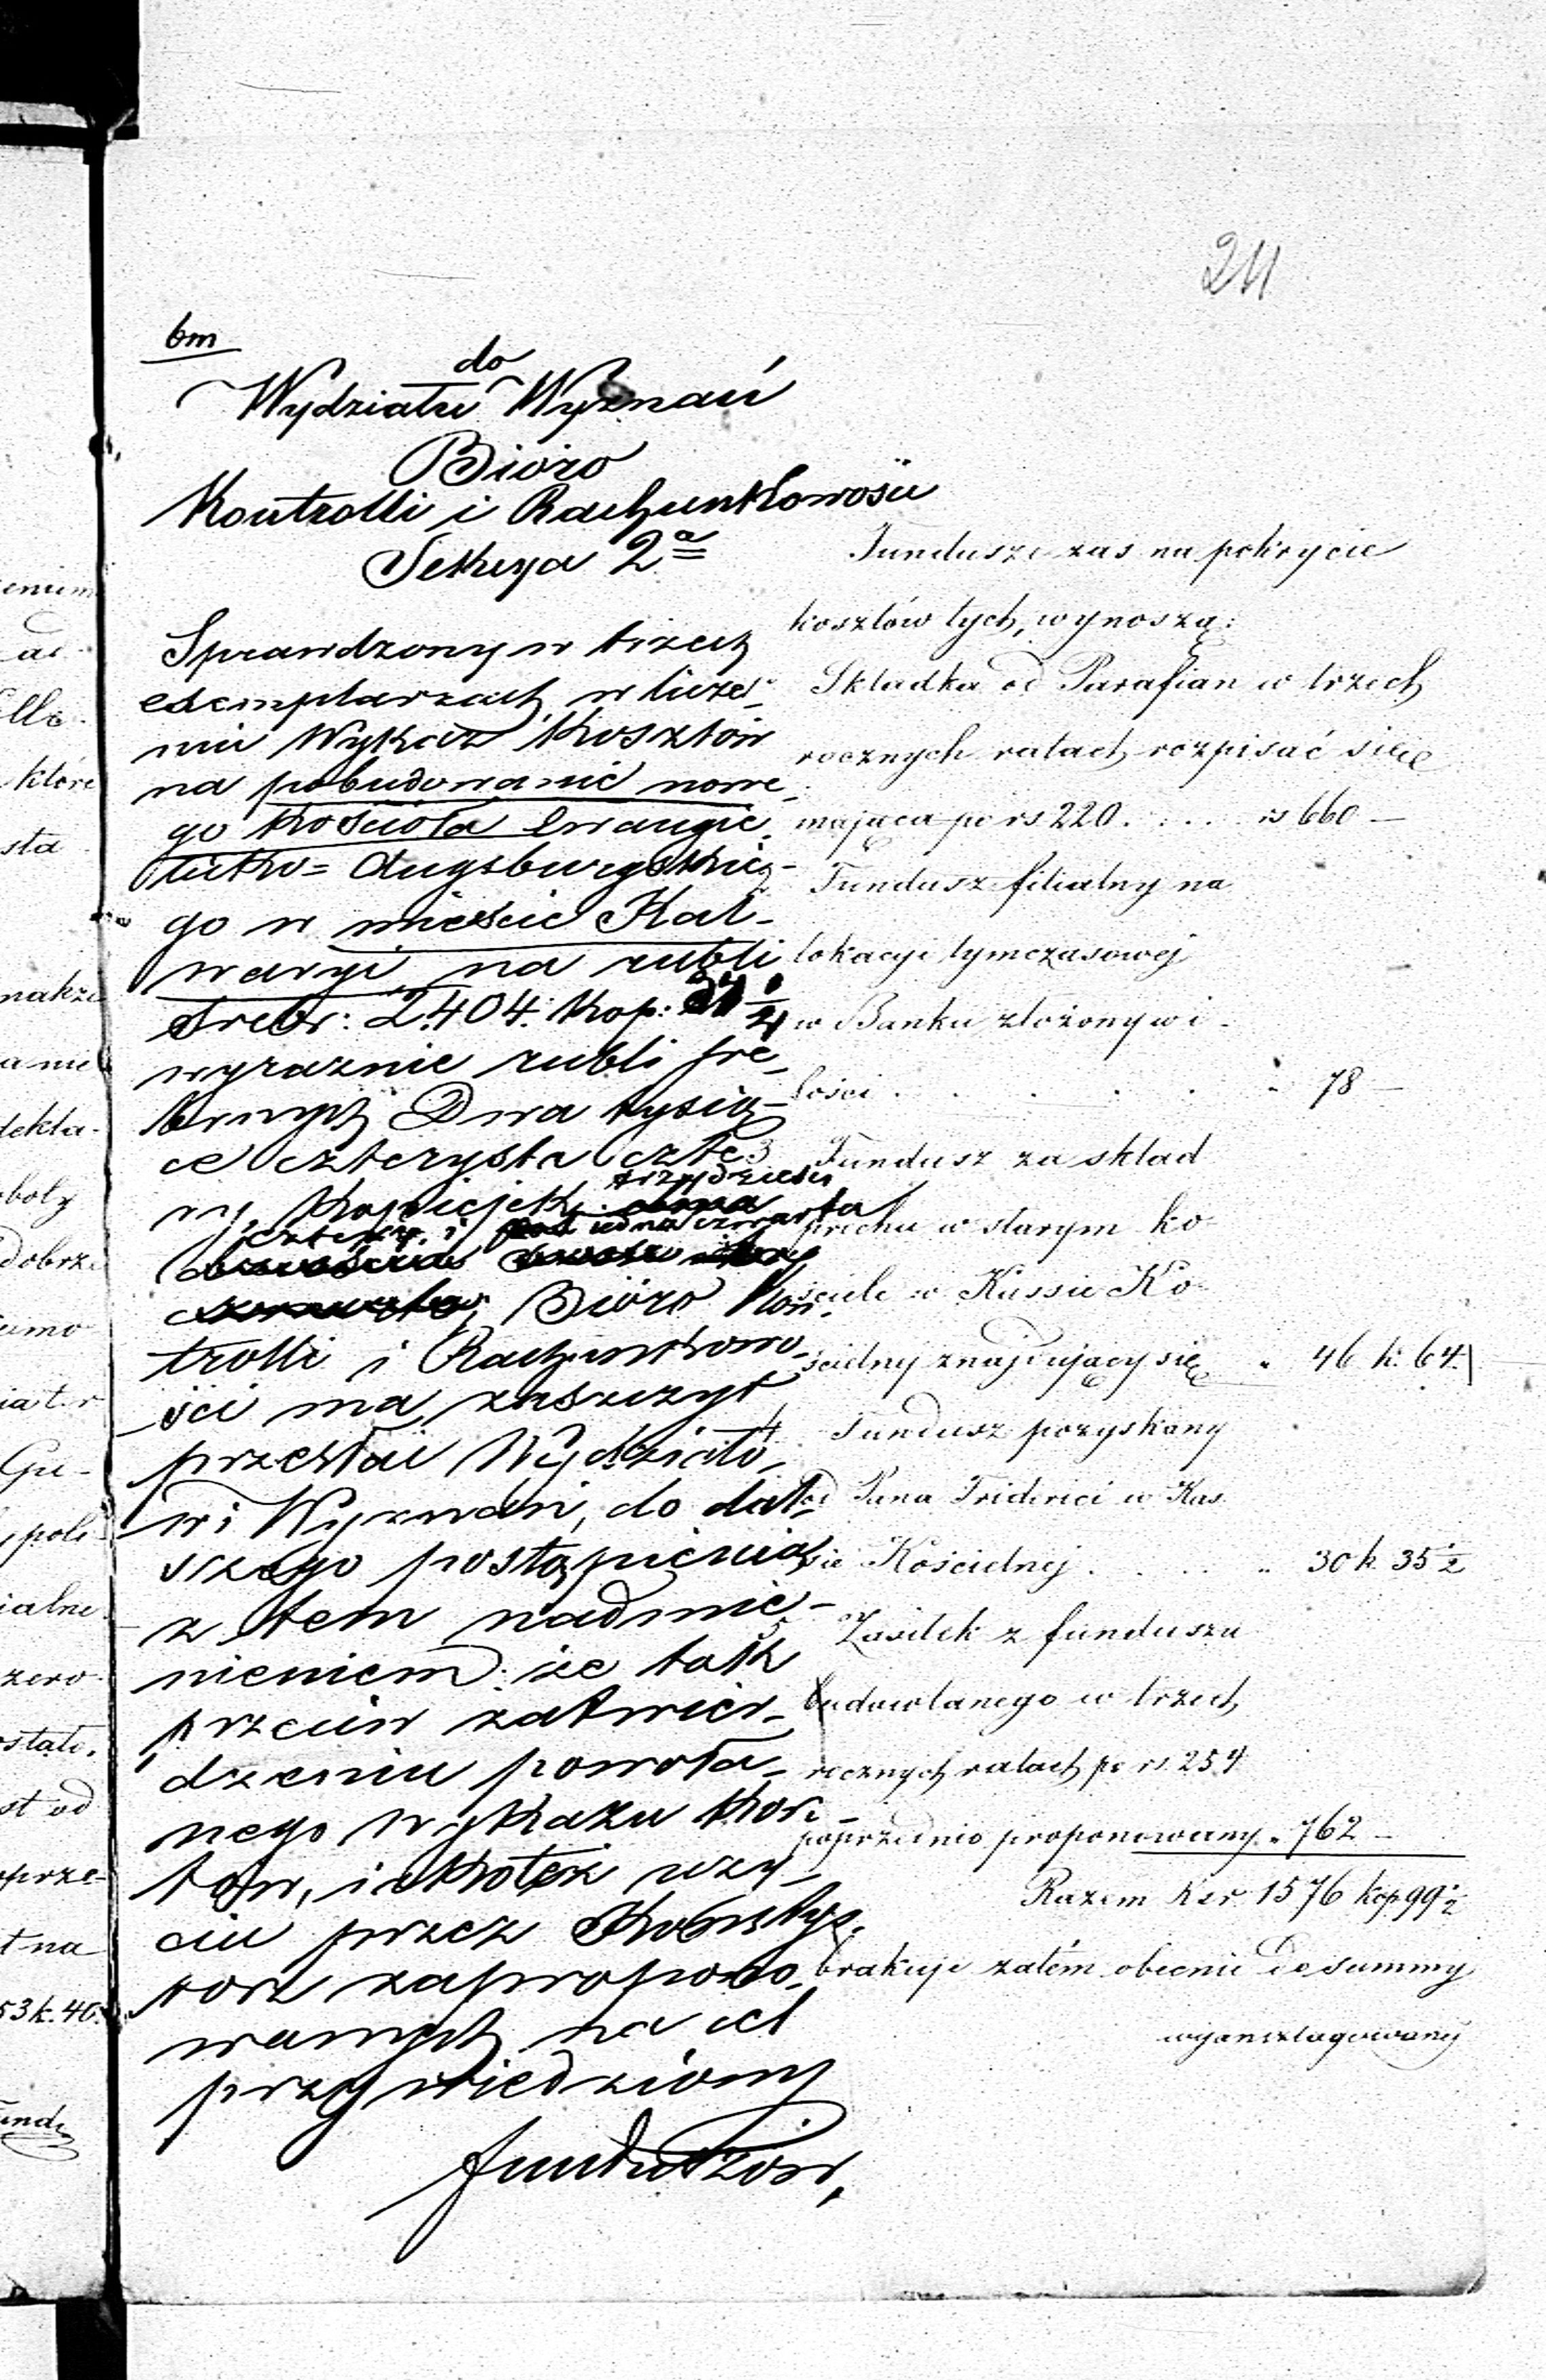 211
bm
do
Wydziału Wyznań
Bióro
Kontrolli i Rachunkowości
Sekcya 2a
Sprawdzony w trzech
exemplarzach, w licze-
niu Wykaz Kosztów
na pobudowanie nowe-
go Kościoła Ewangie-
licko= Augsburgskie-
go w mieście Kal-
waryi, na rubli
srebr: 2404. Kop:
wyraznie rubli sre-
brnych Dwa tysią-
ce czterysta czte-
ry, Kopiejek trzydzieści
cztery i jedna czwarta
Bióro Kon-
trolli i Rachunkowo-
ści ma zaszczyt
przesłać Wydziało-
wi Wyznań, do dal-
szego postąpienia
z tem nadmie-
nieniem: że tak
przeciw zatwier-
dzeniu powoła-
nego wykazu Kosz-
tów, jakoteż uzy-
ciu przez Konsys-
torz zapropono-
wanych na cel
przywiedziony
funduszów,
Fundusze zas na pokrycie
kosztów tych, wynoszą:
Składka od Parafian w trzech
rocznych ratach rozpisać się
mająca po rs 220 . . . . rs 660 —
Fundusz filialny na
lokacyi tymczasowej
w Banku złożony w i-
lości . . . . . " 78 —
3 Fundusz za skład
prochu w starym ko-
ściele w Kassie Ko-
ścielny znajdujący się " 46 k. 64
4 Fundusz pozyskany
od Pana Friderici w Kas-
sie Kościelnej . . . . " 30 k. 35 1/2
5 Zasiłek z funduszu
budowlanego w trzech
rocznych ratach po rs. 254
poprzednio proponowany " 762 —
Razem Rsr. 1576 kop 99 1/2
brakuje zatém obecnie do summy
wyanszlagowanej